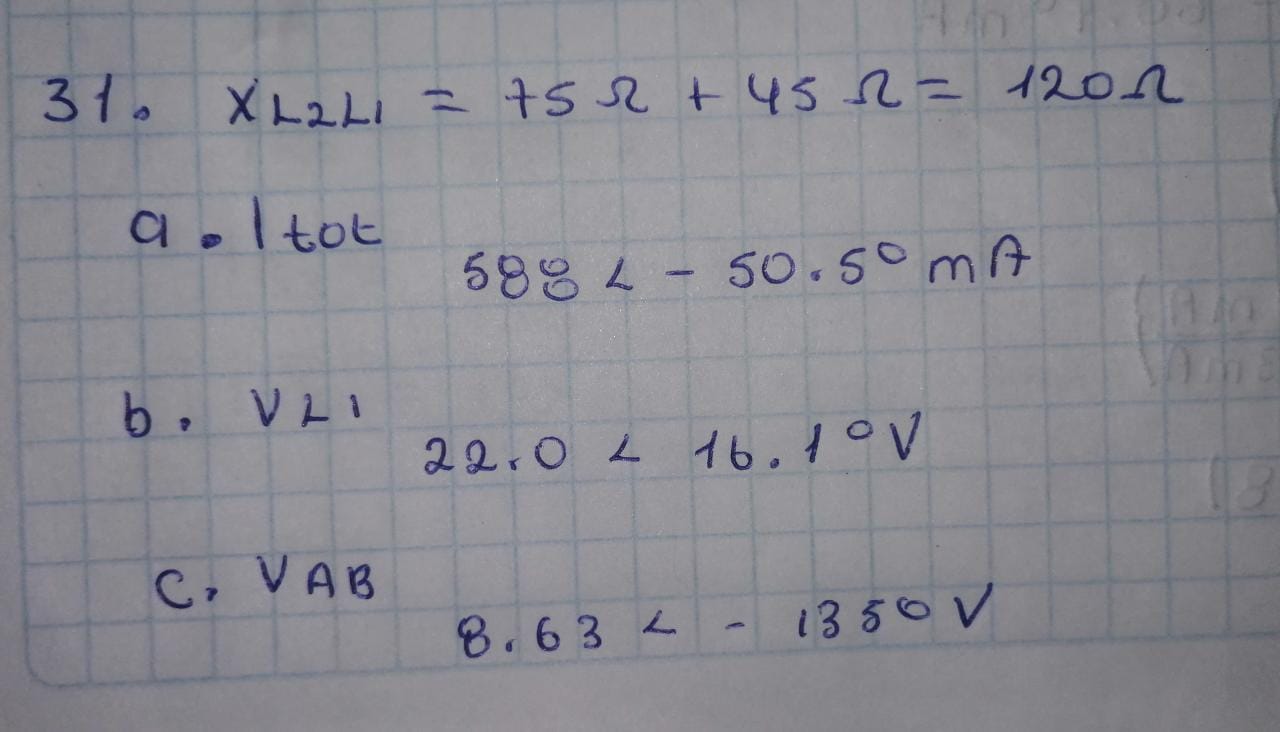 31. XL2L1 = 75Ω + 45Ω = 120Ω
a. Itot
588 < - 50.5° mA
b. VL1
22.0 < 16.1° V
c. VAB
8.63 < - 135° V